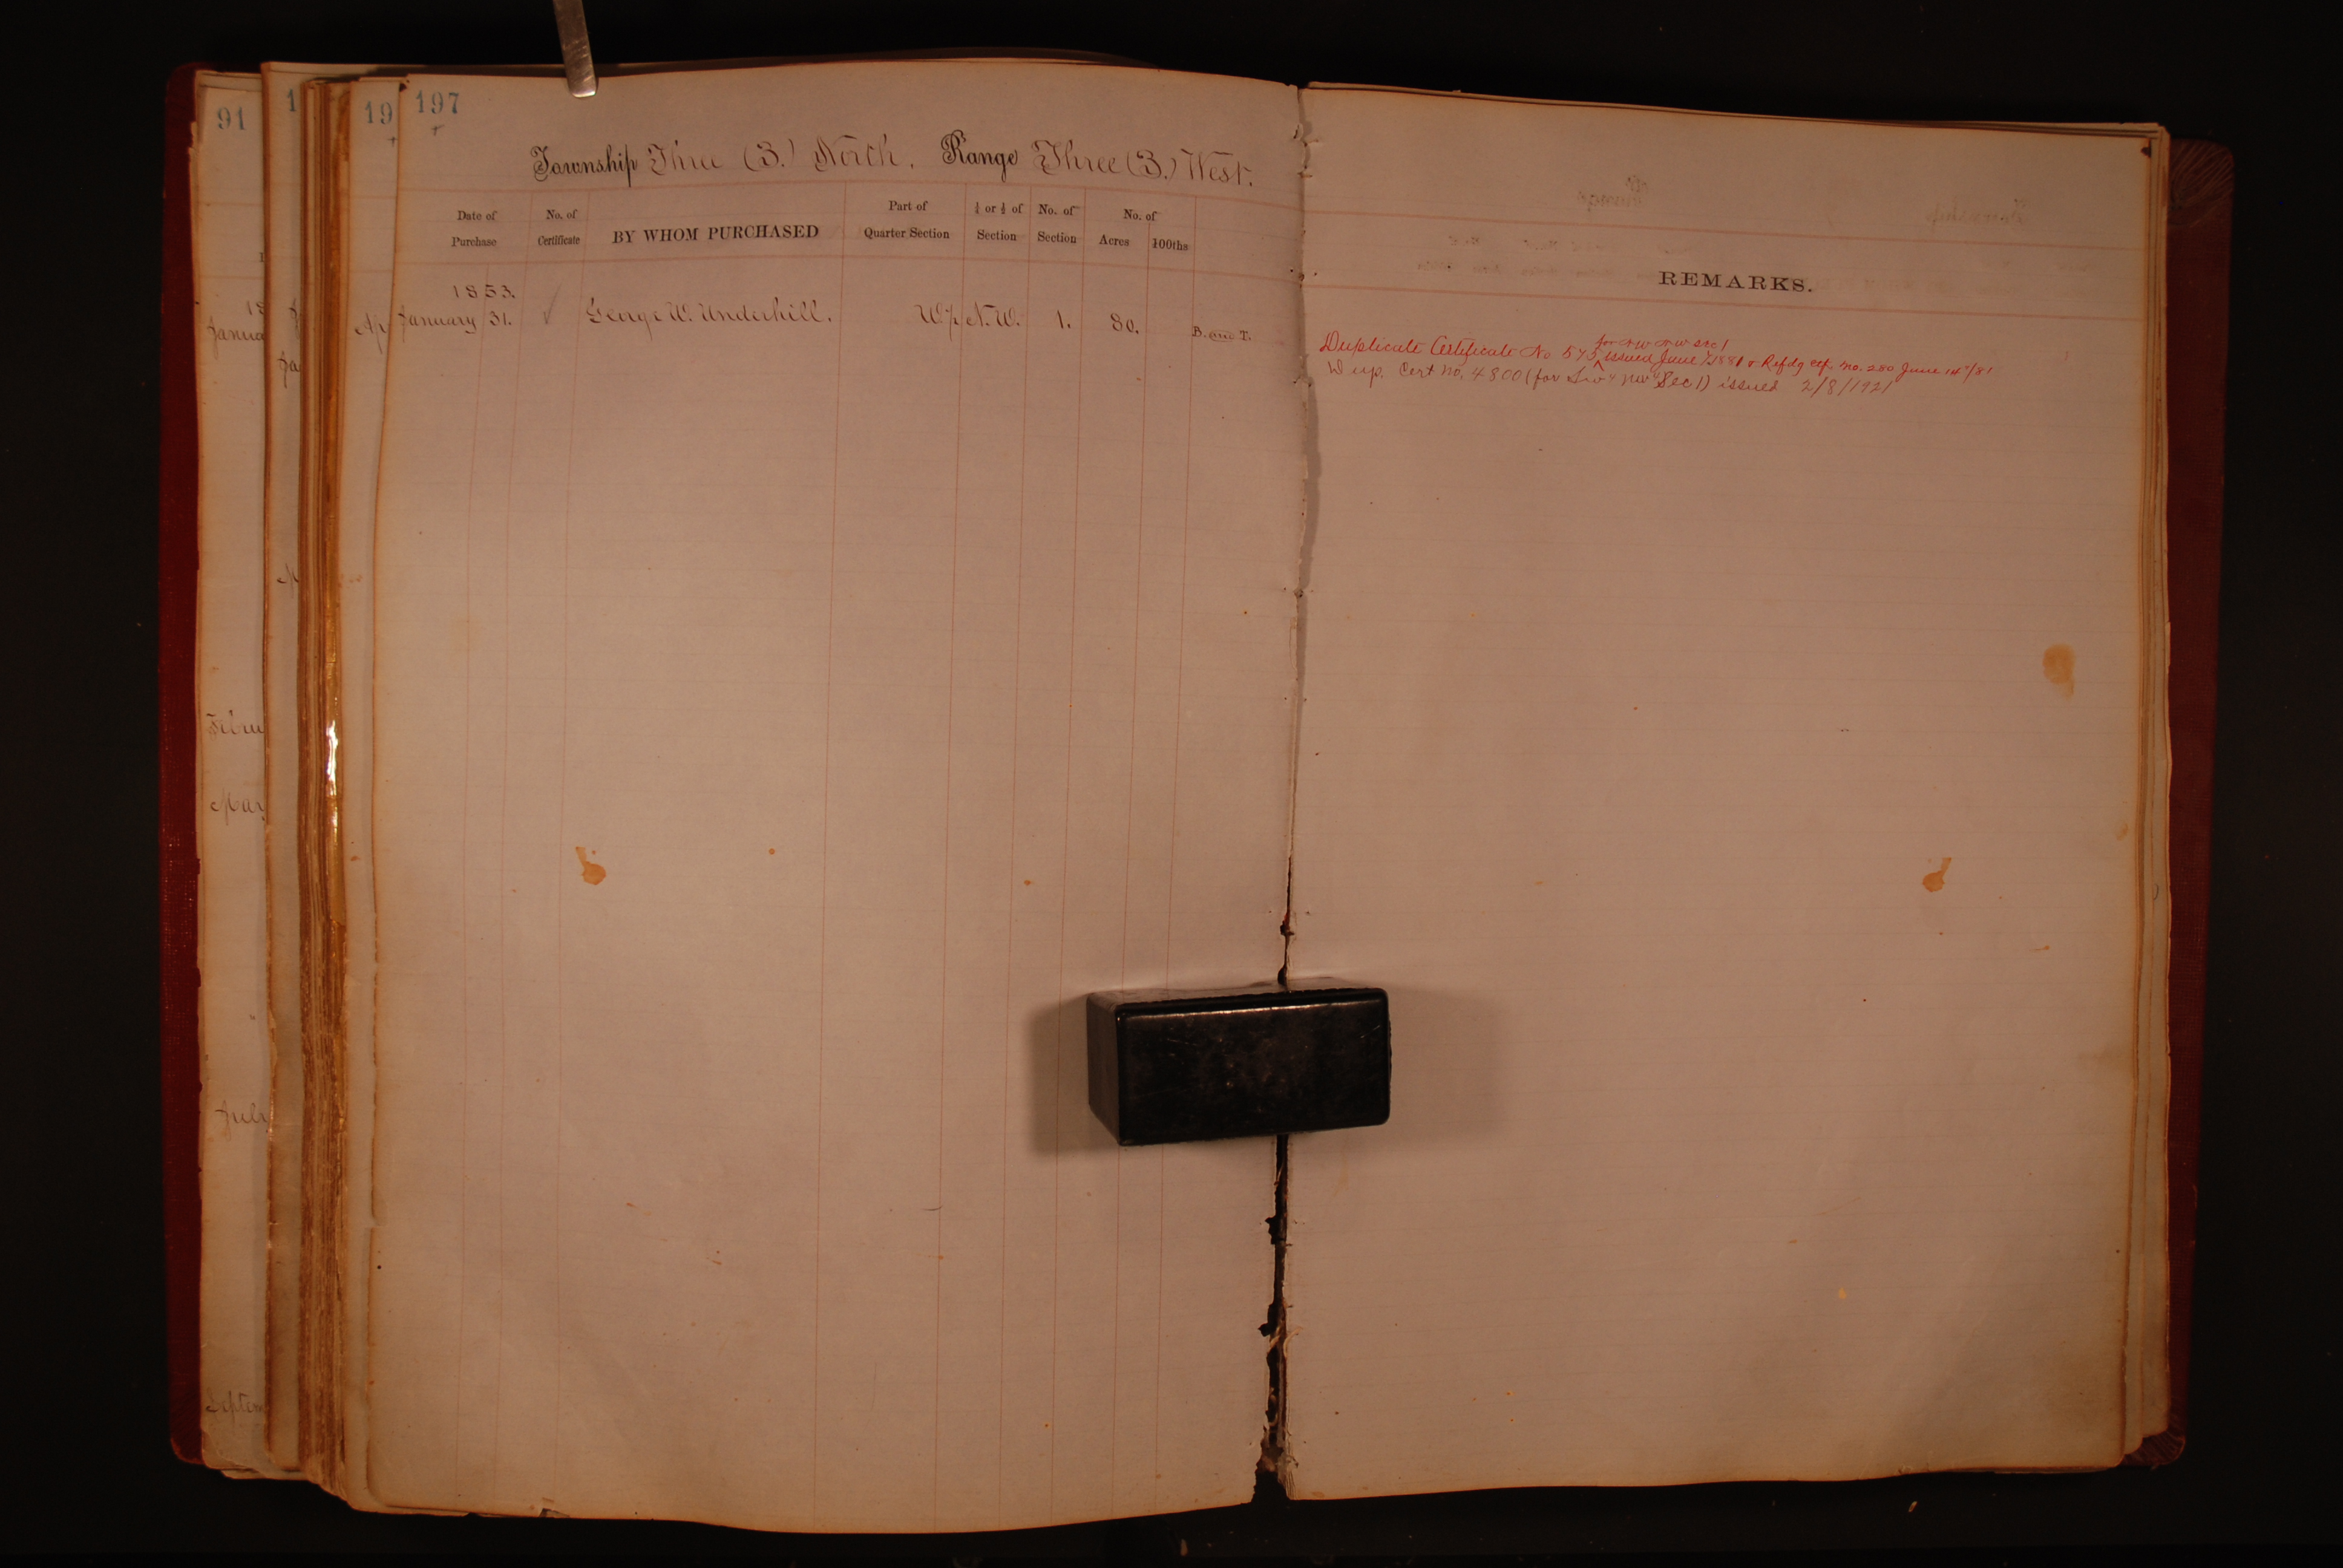 91
1
19
197
Township Three (3.) North. Range Three (3.) West.
Date of Purchase
No. of Certificate
BY WHOM PURCHASED
Part of Quarter Section
½ or ¼ of Section
No. of Section
No. of
Acres
100ths
REMARKS.
1853.
January 31. ✓ George W. Underhill. W½ N.W. 1. 80. B. and T.
for nw nw sec 1
Duplicate Certificate No 575 ^ issued June 1881 & Refdg ctf. No. 280 June 14"/81
Dup. Cert no. 4800 (for Sw" nw" Sec 1) issued 2/8/1921
18
Janua
Ja
Ap
Febru
Mar
"
July
Septem